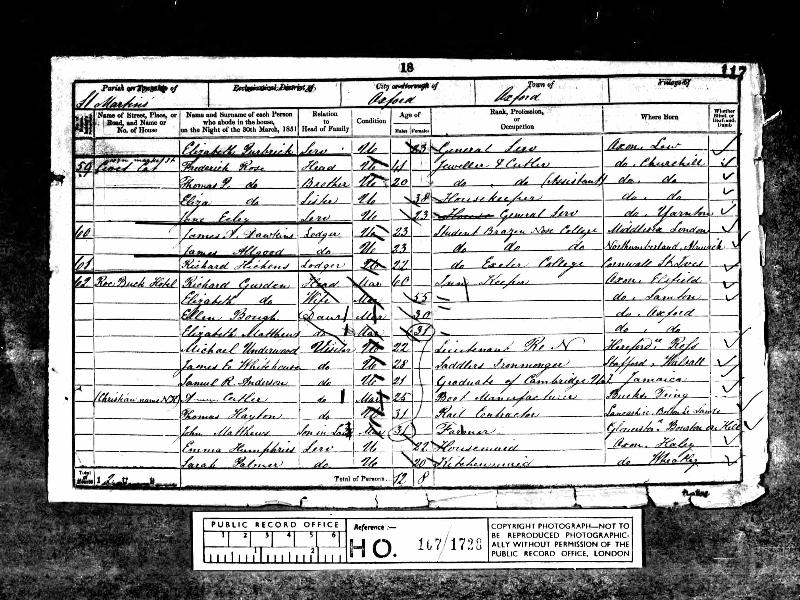 18
117
Parish or Township of Ecclesiastical District of City or Borough of Town of Village of
St Martins Oxford Oxford
Name of Street, Place, or Road, and Name or No. of House
Name and Surname of each Person who abode in the house, on the Night of the 30th March, 1851
Relation to Head of Family
Condition
Age of Males Females
Rank, Profession, or Occupation
Where Born
Whether Blind, or Deaf-and-Dumb
Elizabeth Serv Un 23 General Serv Oxon. Lew
59 Frederick Rose Head Un 41 Jeweller & Cutler do. Churchill
Thomas do Brother Un 20 do do (Assistant) do. do
Eliza do Sister Un 38 Housekeeper do. do
Jane Serv Un 23 General Serv do. Yarnton
60 James Dawkins Lodger Un 23 Student Brazen Nose College Middlesex London
James Allgood do Un 23 do do do Northumberland, Alnwick
61 Richard Hichens Lodger Un 22 do Exeter College Cornwall St Ives
62 Roe Buck Hotel Richard Gurden Head Mar 60 Inn Keeper Oxon. Elsfield
Elizabeth do Wife Mar 55 do.
Ellen Bough Daur Mar 30 do. Oxford
Elizabeth Matthews do Mar 31 do. do
Michael Underwood Visitor Un 22 Lieutenant Re N Herefords Ross
James E Whitehouse do Un 28 Saddlers Ironmonger Stafford, Walsall
Samuel R. Anderson do Un 21 Graduate of Cambridge Jamaica
(Christian name NK) Cutler do Mar 25 Boot Manufacturer Bucks Tring
Thomas Hayton do 31 Rail Contractor Lancashire
John Matthews Son in Law Mar 31 Farmer Glouceste. Bourton on Hill
Emma Humphries Serv Un 22 Housemaid Oxon.
Sarah Palmer do Un 20 Kitchenmaid do
Total of Persons 12 8
PUBLIC RECORD OFFICE
1 2
Reference:-
HO. 107/1728
COPYRIGHT PHOTOGRAPH—NOT TO BE REPRODUCED PHOTOGRAPHICALLY WITHOUT PERMISSION OF THE PUBLIC RECORD OFFICE, LONDON